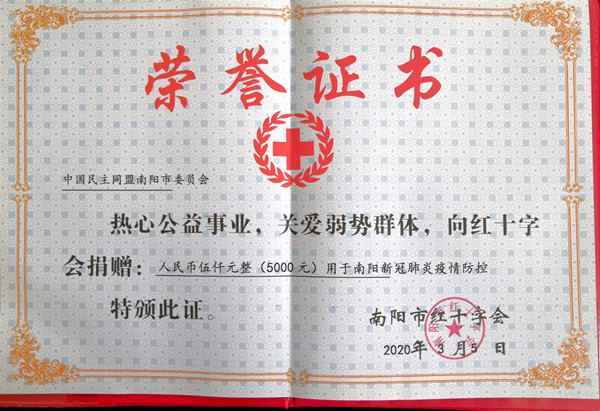 荣誉证书
中国民主同盟南阳市委员会
热心公益事业，关爱弱势群体，向红十字
会捐赠：人民币伍仟元整（5000 元）用于南阳新冠肺炎疫情防控
特颁此证。
南阳市红十字会
2020年 3 月 5 日